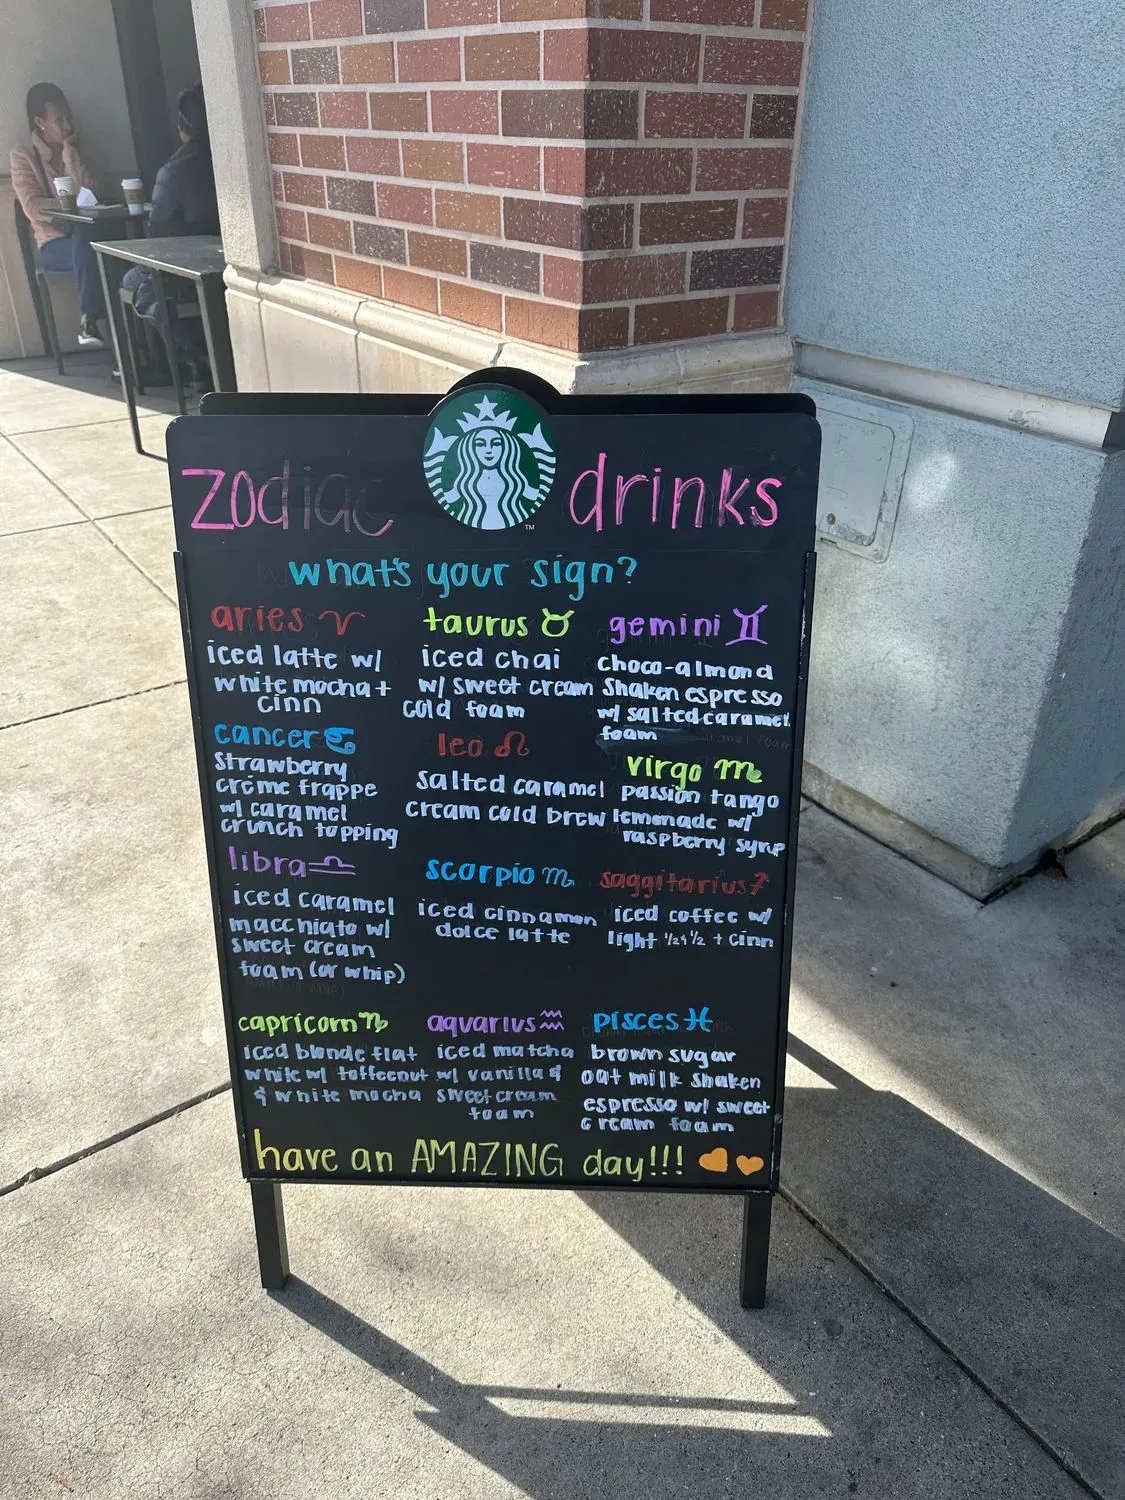 zodiac drinks
TM
what's your sign?
aries ♈
iced latte w/
white mocha +
cinn
taurus ♉
iced chai
w/ sweet cream
cold foam
gemini ♊
choco-almond
shaken espresso
w/ salted caramel
foam
cancer ♋
strawberry
créme frappe
w/ caramel
crunch topping
leo ♌
salted caramel
cream cold brew
virgo ♏
passion tango
lemonade w/
raspberry syrup
libra ♎
iced caramel
macchiato w/
sweet cream
foam (or whip)
scorpio ♏
iced cinnamon
dolce latte
saggitarius ♐
iced coffee w/
light 1/2 & 1/2 + cinn
capricorn ♑
iced blonde flat
white w/ toffeenut
& white mocha
aquarius ♒
iced matcha
w/ vanilla &
sweet cream
foam
pisces ♓
brown sugar
oat milk shaken
espresso w/ sweet
cream foam
have an AMAZING day!!!